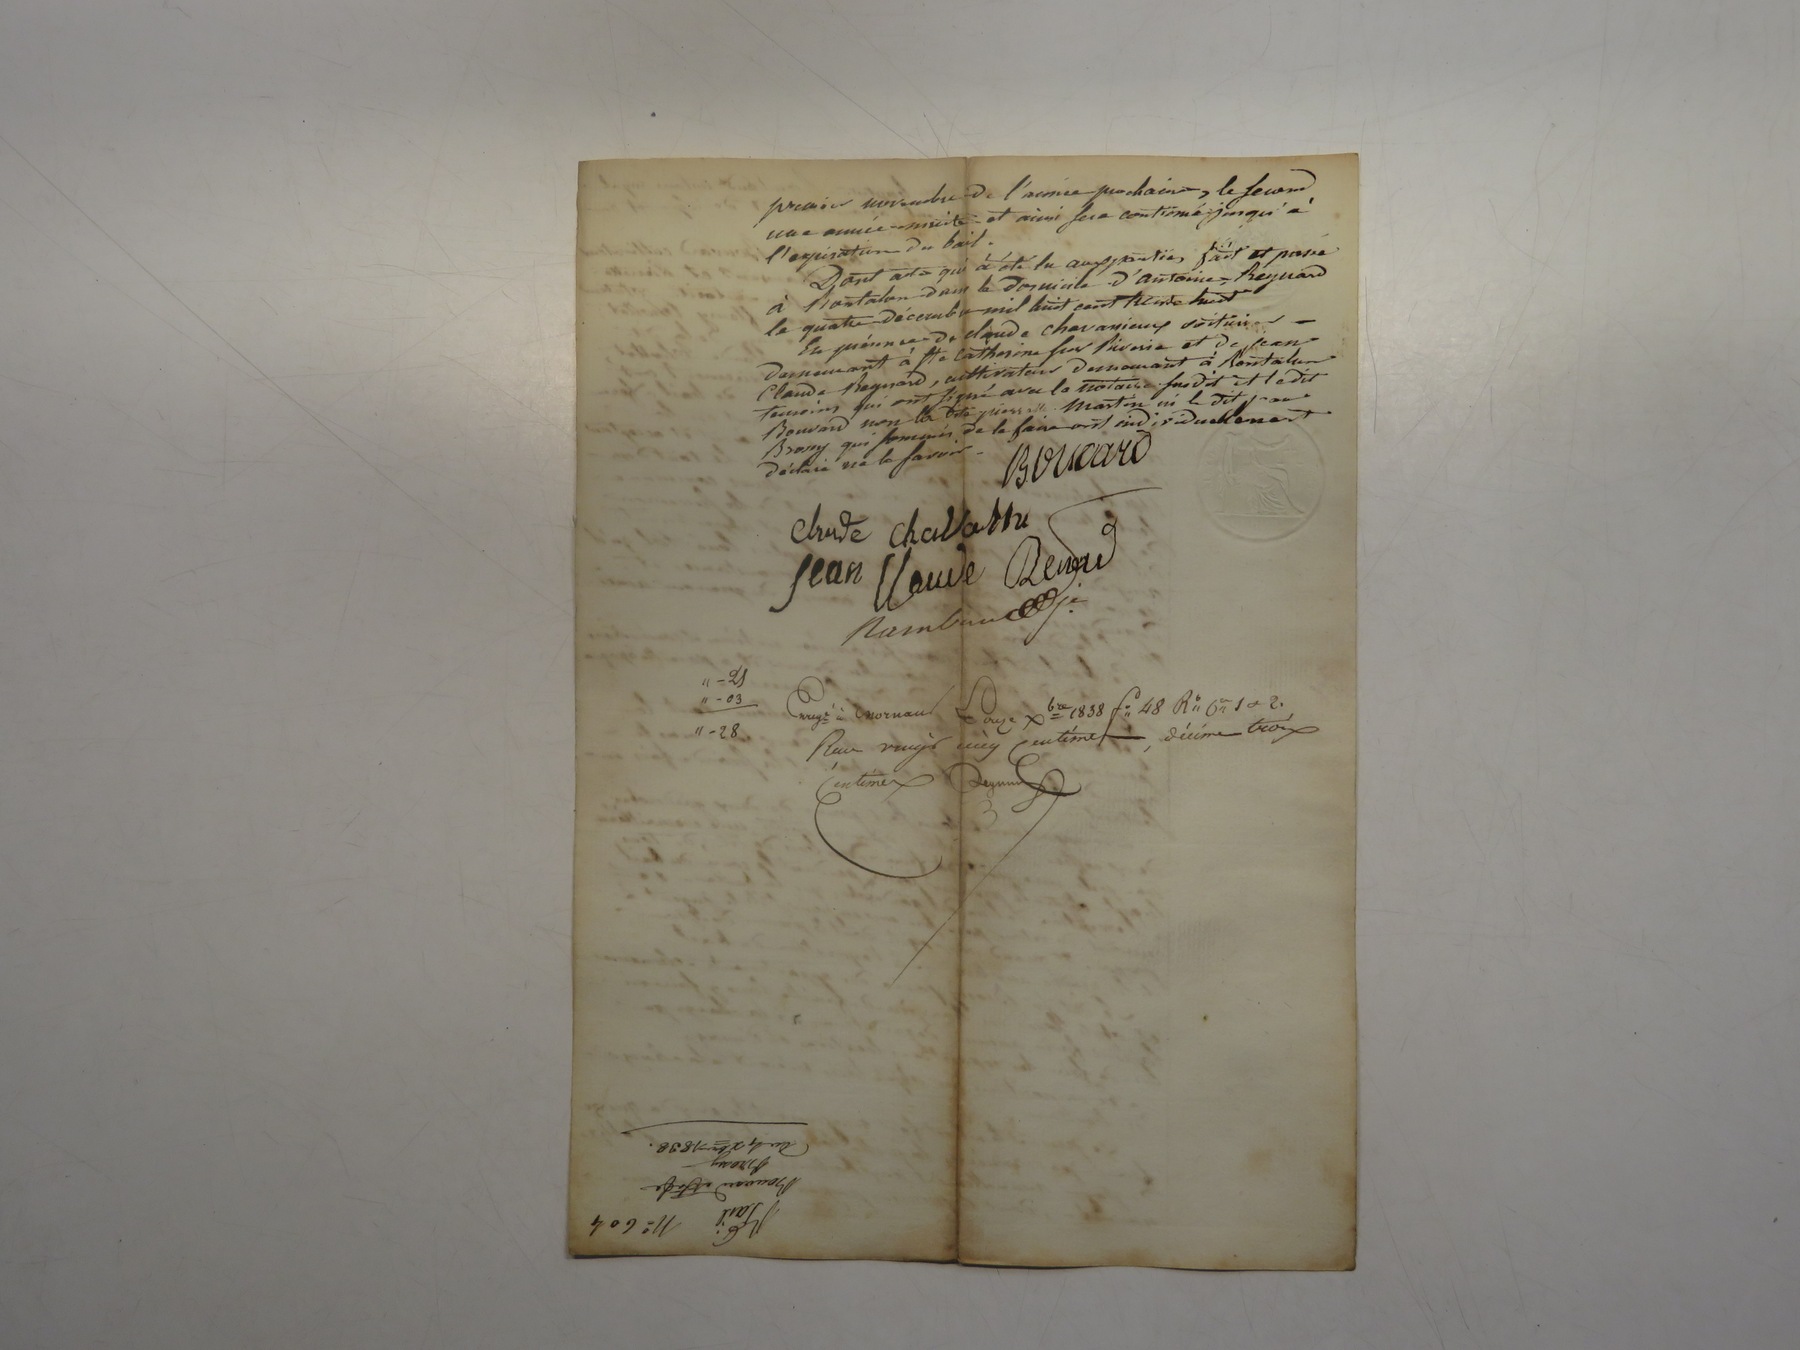 premier novembre de l'année prochaine, le second
une année ensuite et ainsi sera continué jusqu'à
l'expiration du bail.
Dont acte qui a été lu aux parties, fait et passé
à Rontalon dans le domicile d'antoine Reynard
le quatre décembre mil huit cent trente huit
En présence de claude chavanieux voiturier
demeurant à Ste Catherine sur Riverie et de jean
Claude Reynard, cultivateur demeurant à Rontalon
temoins qui ont signé avec le notaire susdit et le dit
Bouvard non la dite pierrette Martin ni le dit
Brosy qui sommés de le faire ont individuellement
déclaré ne le savoir.
Bouvard
claude
Jean Claude Renard
" - 25
" - 03
" - 28
à mornant Le onze Xbre 1838 fo 48 Ro Ces 1 et 2.
Reçu vingt cinq centimes, décime trois
centimes
No 604
Bail
Bouvard
Brosy
du 4 Xbre 1838.